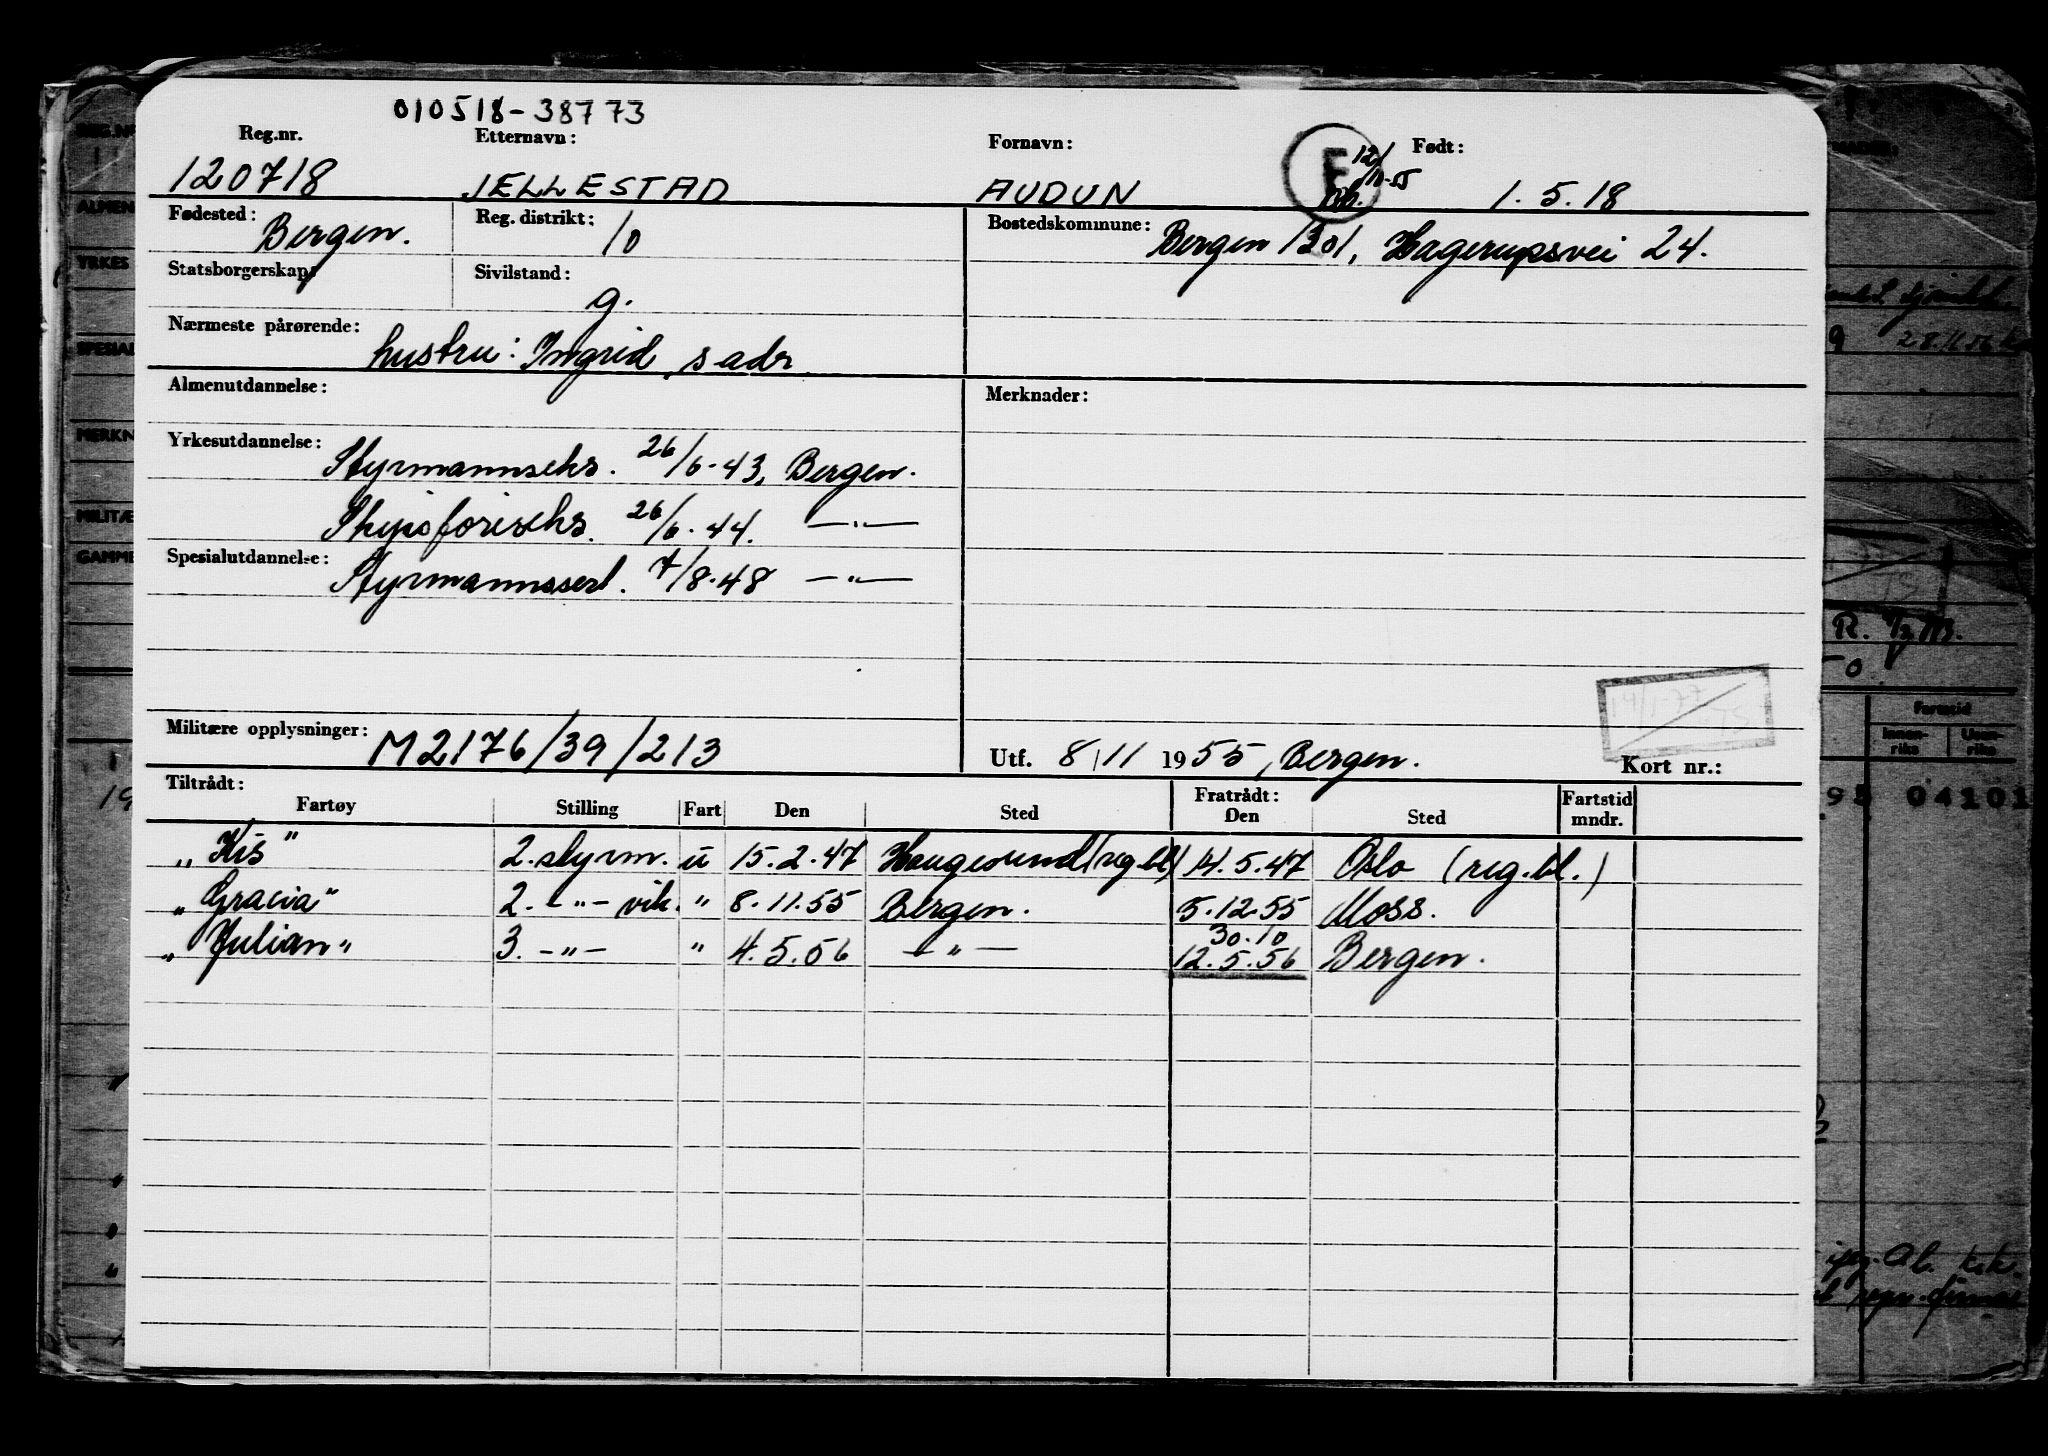 010518-38773
Reg.nr. Etternavn: Fornavn: Født:
120718 JELLESTAD AUDUN F 12/10-55 1.5.18
Fødested: Bergen. Reg. distrikt: 10 Bostedskommune: Bergen 1301, Hagerupsvei 24.
Statsborgerskap: Sivilstand: g.
Nærmeste pårørende: hustru: Ingrid, s adr.
Almenutdannelse: Merknader:
Yrkesutdannelse: Styrmannseks. 26/6-43, Bergen.
Skipsføreseks. 26/6-44. —"—
Spesialutdannelse: Styrmannssert. 7/8-48 —"—
14/1-77
Militære opplysninger: M2176/39/213 Utf. 8/11 1955, Bergen. Kort nr.:
Tiltrådt: Fratrådt:
Fartøy Stilling Fart Den Sted Den Sted Fartstid mndr.
"Kis" 2. styrm. u 15.2.47 Haugesund (reg.bl) 14.5.47 Oslo (reg.bl.)
"Gracia" 2. -"- vik. " 8.11.55 Bergen. 5.12.55 Moss.
30.10
"Julian" 3. -"- " 4.5.56 —"— 12.5.56 Bergen.
REG.N
ALMEN
YRKES
SPESIAL
MERKN
MILITÆ
GAMME
Fartstid
Innen-riks Uten-riks
04101